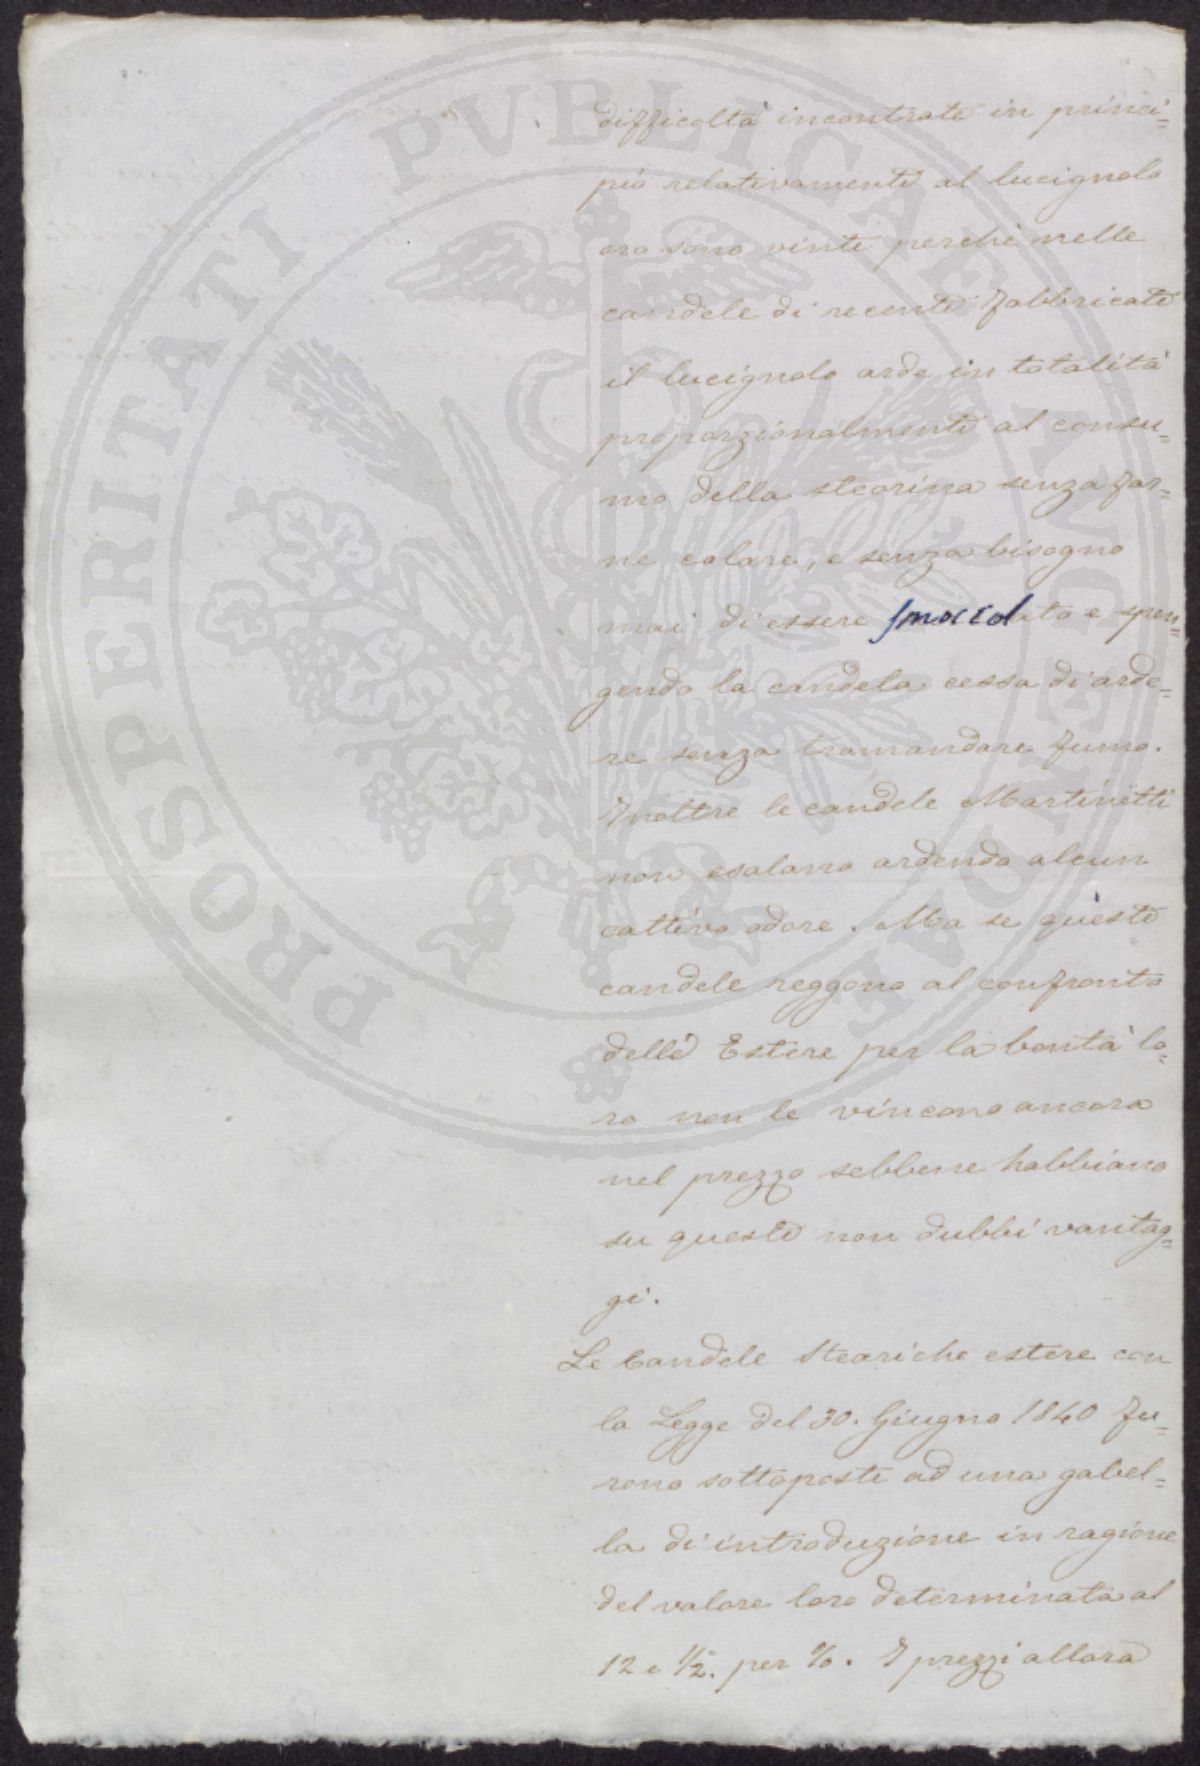 difficoltà incontrate in princi=
pio relativamente al lucignolo
ora sono vinte perchè nelle
candele di recente fabbricate
il lucignolo arde in totalità
proporzionalmente al consu=
mo della stearina senza far=
ne colare, e senza bisogno
mai di essere smoccolato e spen=
gendo la candela cessa di arde=
re senza tramandare fumo.
Inoltre le candele Martinetti
non esalano ardendo alcun
cattivo odore. Ma se queste
candele reggono al confronto
delle Estere per la bontà lo=
ro non le vincono ancora
nel prezzo sebbene habbiano
su queste non dubbi vantag=
gi.
Le Candele Steariche estere con
la Legge del 30. Giugno 1840 fu=
rono sottoposte ad una gabel=
la di introduzione in ragione
del valore loro determinata al
12 e 1/2. per %. I prezzi allora
PROSPERITATI PVBLICAE AVGENDAE